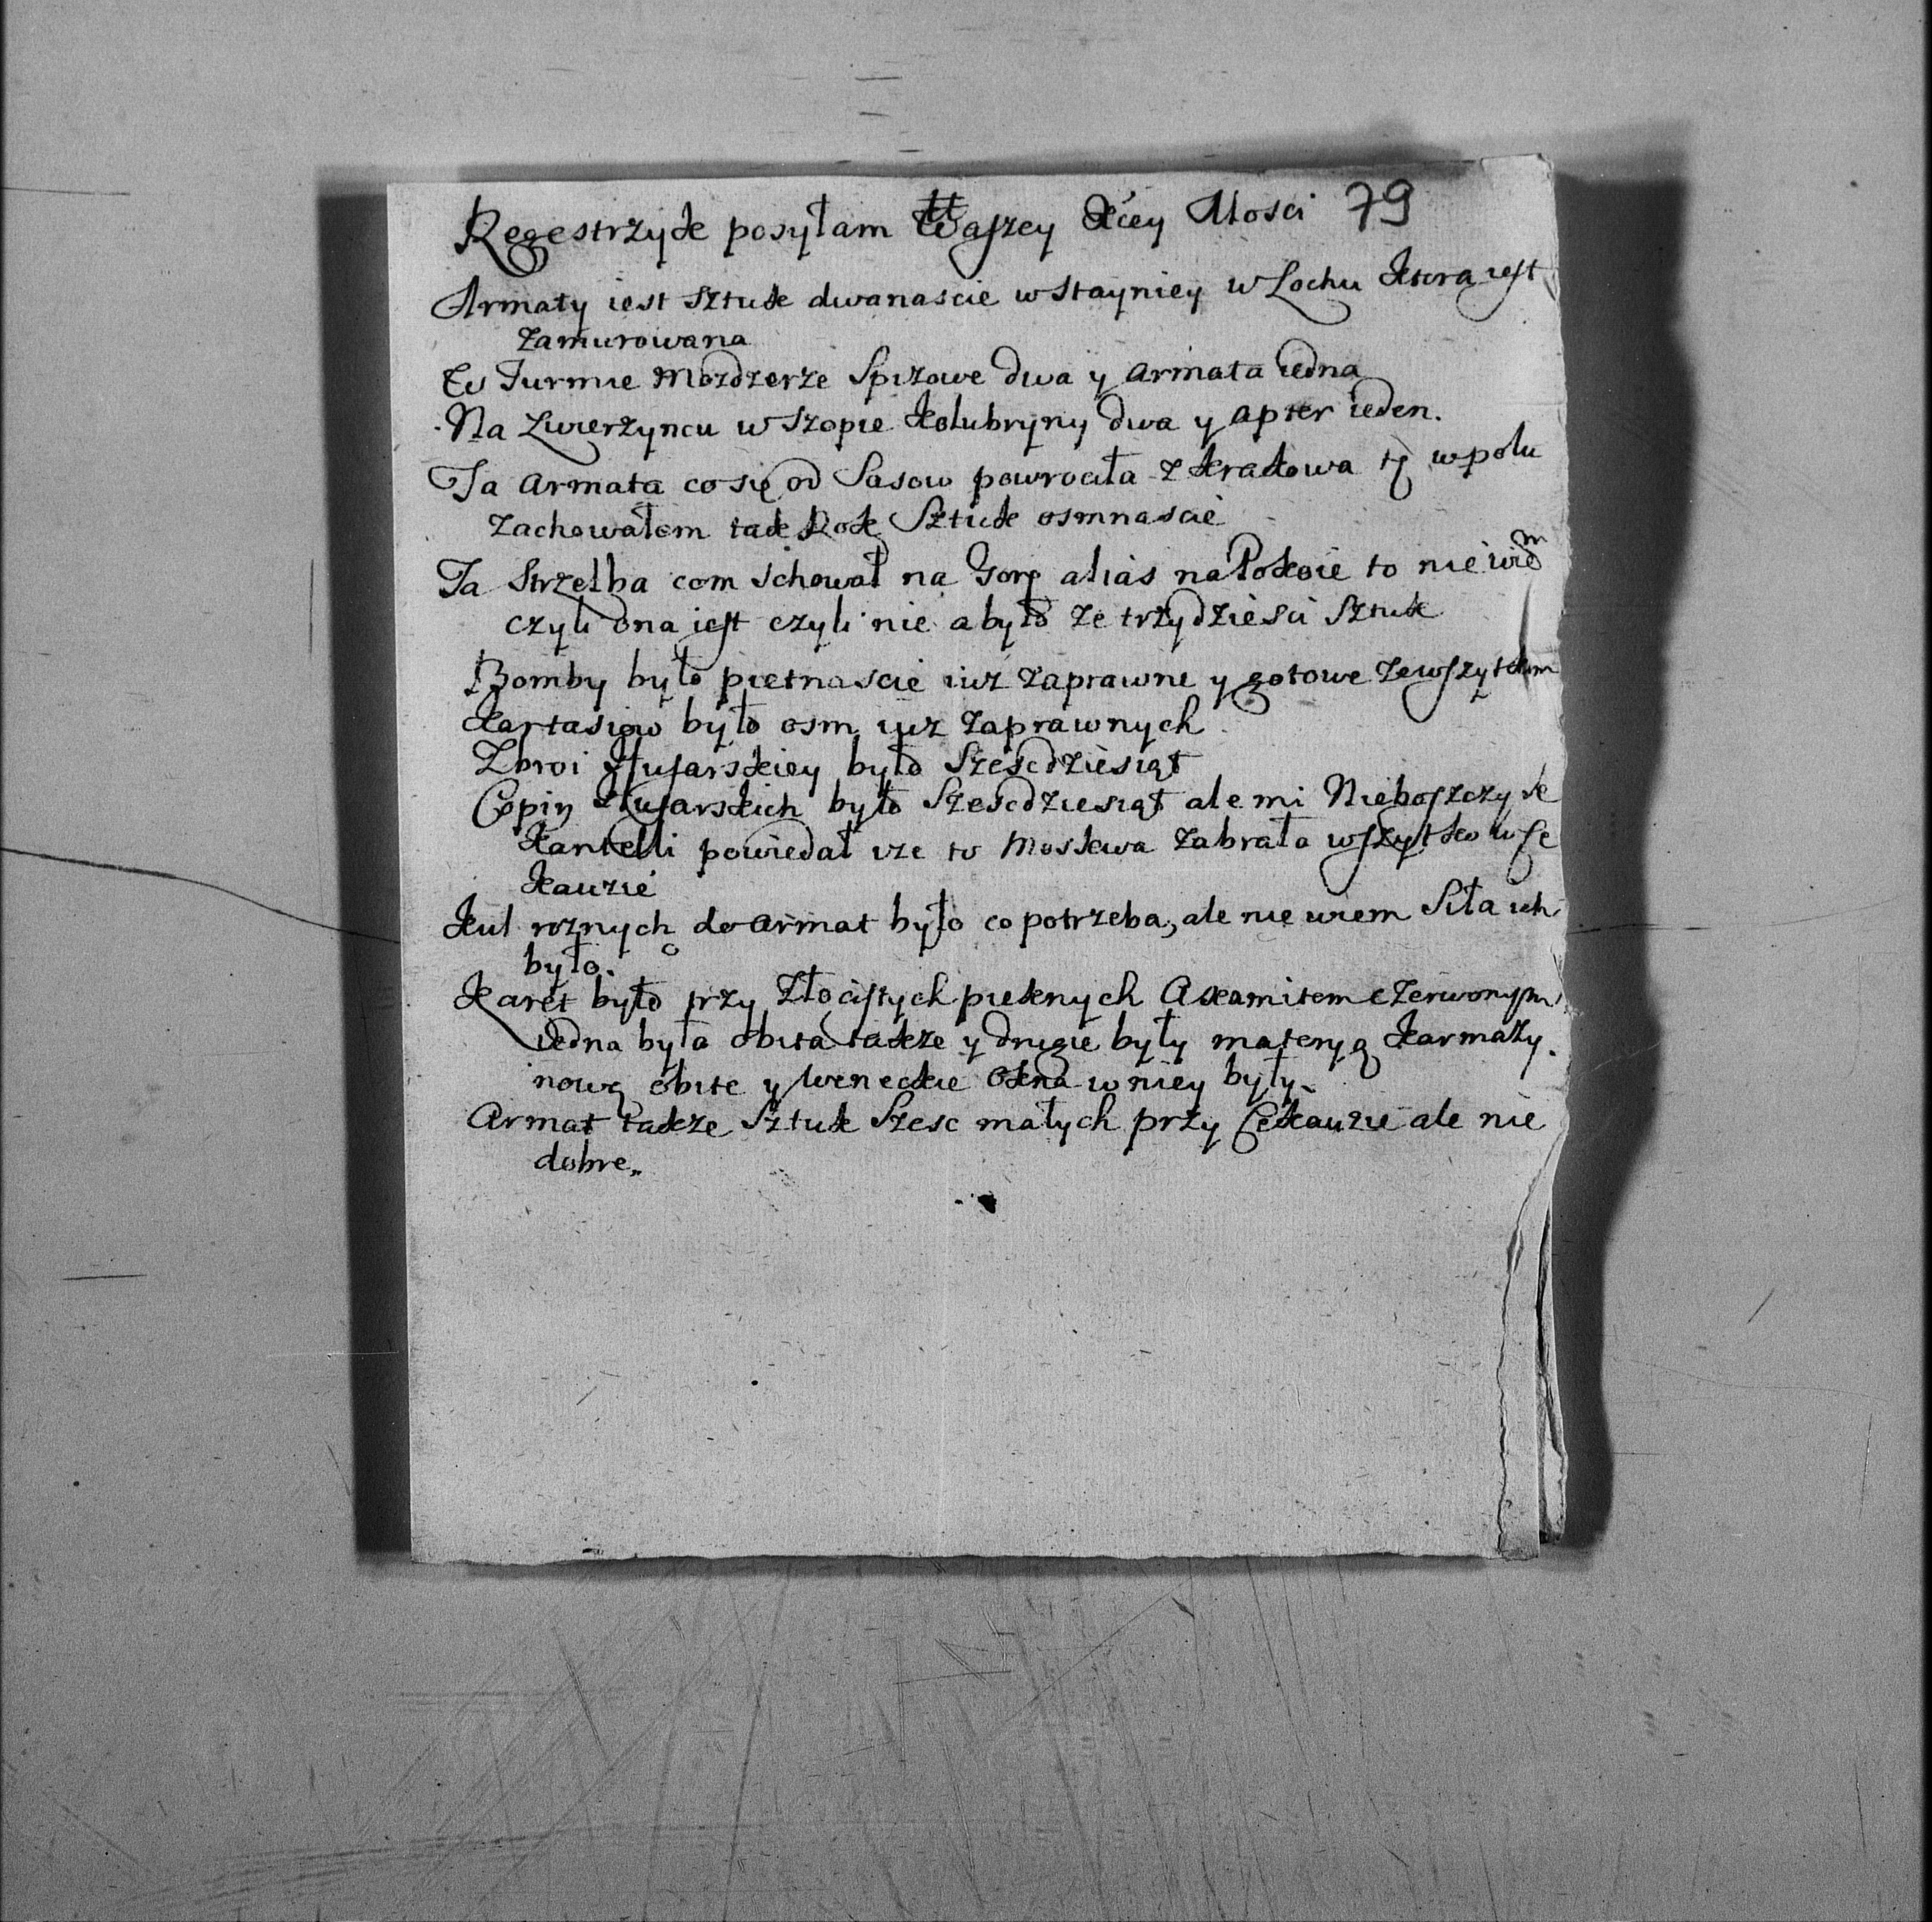 Regestrzyk posyłam Waszey Xcey Mosci 79
Armaty iest sztuk dwanascie w stayniey w Lochu ktora iest
zamurowana
W Turmie mozdzerze spizowe dwa y armata iedna
Na Zwierzyncu w szopie kolubryny dwa y apter ieden.
Ta armata co się od Sasow powrociła z krakowa tę w polu
zachowałem tak Rok sztuk osmnascie
Ta strzelba com schował na Gorę alias na Pokoie to nie wiem
czyli ona iest czyli nie a było ze trzydziesci sztuk
Bomby było pietnascie iuz zaprawne y gotowe ze wszytkim
kartasiow było osm iuz zaprawnych
Zbroi Husarskiey było szescdziesiąt
Copiy Husarskich było szescdziesiąt ale mi Nieboszczyk
Kantelli powiedał ize to moskwa zabrała wszytko w Ce
kauzie
kul roznych do armat było co potrzeba, ale nie wiem siła ich
było.
karet było trzy złocistych pieknych Axamitem czerwonym
iedna była obita takze y drugie były materyą karmazy
nową obite y weneckie okna w niey były.
Armat takze sztuk szesc małych przy Cekauzie ale nie
dobre